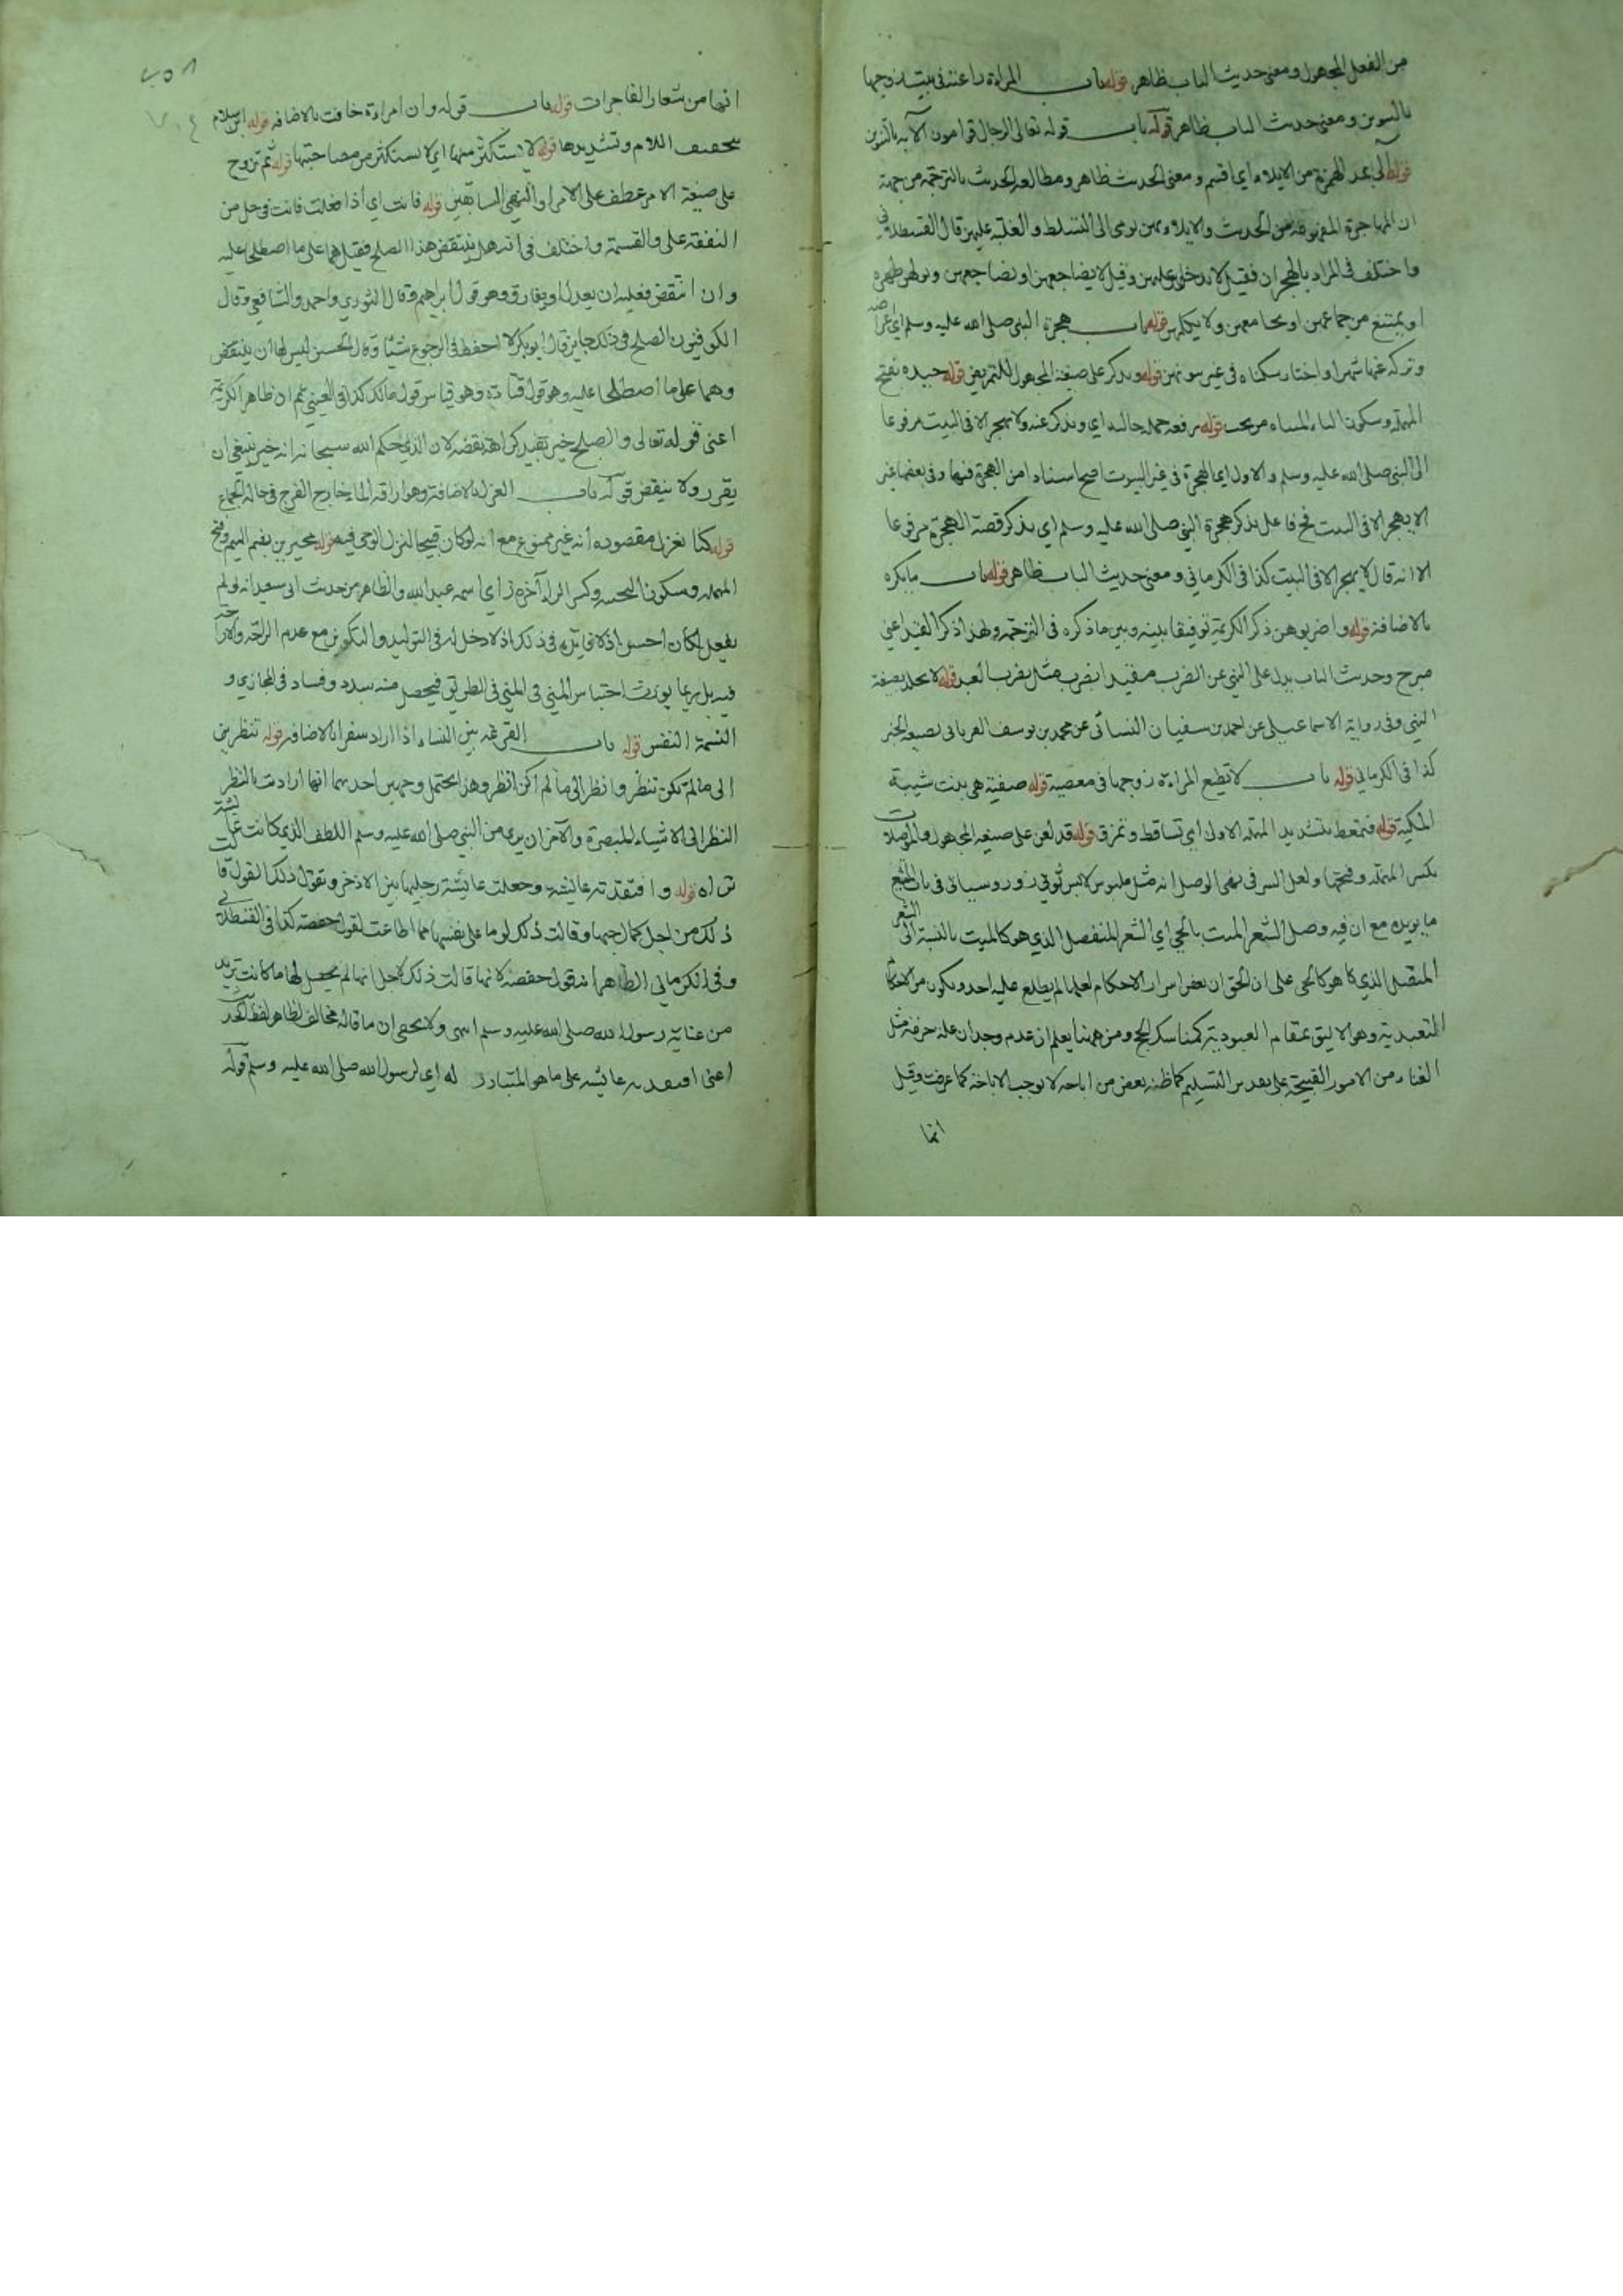 من الفعل المجهول ومعنى حديث الباب ظاهر قوله باب المراءة راعية في بيت زوجها
بالتنوين ومعنى حديث الباب ظاهر قوله باب قوله تعالى الرجال قوامون الآية بالتنوين
قوله آلى بمد الهمزة من الايلاء اي اقسم ومعنى الحديث ظاهر ومطابقة الحديث بالترجمة من جهة
ان المهاجرة المفهومة من الحديث والايلاء من يومى الى التسلط والغلبة عليهن قال القسطلاني
واختلف في المراد بالهجران فقيل لا يدخل عليهن وقيل لا يضاجعهن او يضاجعهن ويولهن ظهره
او يمتنع من جماعهن او يجامعهن ولا يكلمهن قوله باب هجرة النبي صلى الله عليه وسلم اي اعراضه
وتركه عنها شهرا واختار سكناه في غير بيوتهن قوله ويذكر على صيغة المجهول للتمريض قوله حيده بفتح
المهملة وسكون الياء المثناة من تحت قوله رفعه جملة حالية اي ويذكر عنه ولا يهجر الا في البيت مرفوعا
الى النبي صلى الله عليه وسلم والاول اي الهجرة في غير البيوت اصح اسنادا من الهجرة فيها وفي بعضها غير
ان لا يهجر الا في البيت فح فاعل يذكر هجرة النبي صلى الله عليه وسلم اي يذكر قصة الهجرة مرفوعا
الا انه قال لا يهجر الا في البيت كذا في الكرماني ومعنى حديث الباب ظاهر قوله باب ما يكره
بالاضافة قوله واضربوهن ذكر الكريمة توفيقا بينه وبين ما ذكره في الترجمة ولهذا ذكر القيد اعني
مبرح وحديث الباب يدل على النهي عن الضرب مقيدا بضرب مثل ضرب العبد قوله لا يجلد بصيغة
النهي وفي رواية الاسماعيلي عن احمد بن سفيان النسائي عن محمد بن يوسف الفريابي بصيغة الخبر
كذا في الكرماني قوله باب لا تطيع المراءة زوجها في معصية قوله صفية هي بنت شيبة
المكية قوله فتمعط بتشديد المهملة الاولى اي تساقط وتمزق قوله قد لعن على صيغة المجهول والموصلات
بكسر المهملة وفتحها ولعل السر في نهى الوصل انه مثل ملبوس لابس ثوبي زور وسياتي في باب المتشبع
ما يؤيده مع ان فيه وصل الشعر الميت بالحي اي الشعر المنفصل الذي هو كالميت بالنسبة الى الشعر
المتصل الذي كا هو كالحي على ان الحق ان بعض اسرار الاحكام لعلها لم يطلع عليه احد ويكون من الاحكام
التعبدية وهو الاليق بمقام العبودية كمناسك الحج ومن ههنا يعلم ان عدم وجدان علة حرمة مثل
الغناء من الامور القبيحة على تقدير التسليم كما ظنه بعض من اباحه لا يوجب الاباحة كما عرفت وقيل
انها
٢٥٨
٧٠٤
انها من شعار الفاجرات قوله باب قوله وان امراءة خافت بالاضافة قوله ابن سلام
بتخفيف اللام وتشديدها قوله لا يستكثر منها اي لا يستكثر من مصاحبتها قوله ثم تزوج
على صيغة الامر عطف على الامر او النهي السابقين قوله فانت اي اذا فعلت فانت في حل من
النفقة علي والقسمة واختلف في انه هل ينتقض هذا الصلح فقيل هما على ما اصطلحا عليه
وان انتقض فعليه ان يعدل او يفارق وهو قول ابراهيم وقال الثوري واحمد والشافعي وقال
الكوفيون الصلح في ذلك جايز قال ابو بكر لا احفظ في الرجوع شيئا وقال الحسن ليس لها ان ينتقض
وهما على ما اصطلحا عليه وهو قول قتادة وهو قياس قول مالك كذا في العيني ثم ان ظاهر الكريمة
اعني قوله تعالى والصلح خير يفيد كراهة نقضه لان الذي حكم الله سبحانه انه خير ينبغي ان
يقرر ولا ينقض قوله باب العزل بالاضافة وهو اراقة الماء خارج الفرج في حالة الجماع
قوله كنا نعزل مقصوده انه غير ممنوع مع انه لو كان قبيحا لنزل الوحي فيه قوله محيريز بضم الميم وفتح
المهملة وسكون التحتية وكسر الراء آخره زاي اسمه عبد الله والظاهر من حديث ابي سعيد انه لو لم
يفعل لكان احسن اذ لا فايدة في ذلك اذ لا دخل له في التوليد والتكوين مع عدم الراحة والحرارة
فيه بل ربما يورث احتباس المني في المني في الطريق فيحصل منه سدد وفساد في المجازي و
النسمة النفس قوله باب القرعة بين النساء اذا اراد سفرا بالاضافة قوله تنظرين
الى ما لم تكن تنظر وانظر الى ما لم اكن انظر وهذا يحتمل وجهين احدهما انها ارادت بالنظر
النظر الى الاشياء المبصرة والآخر ان يرى من النبي صلى الله عليه وسلم اللطف الذي كانت عائشة
تراه قوله وافتقدته عائشة وجعلت عايشة رجليها بين الاذخر وتقول ذلك القول قالت
ذلك من اجل كمال حبها وقالت ذلك لوما على نفسها مما اطاعت لقول حفصة كذا في القسطلاني
وفي الكرماني الظاهر انه قول حفصة لانها قالت ذلك لاجل انها لم يحصل لها ما كانت تريد
من عناية رسول الله صلى الله عليه وسلم انتهى ولا يخفى ان ما قاله مخالف لظاهر لفظ الحديث
اعني افتقدته عائشة على ما هو المتبادر له اي لرسول الله صلى الله عليه وسلم قوله